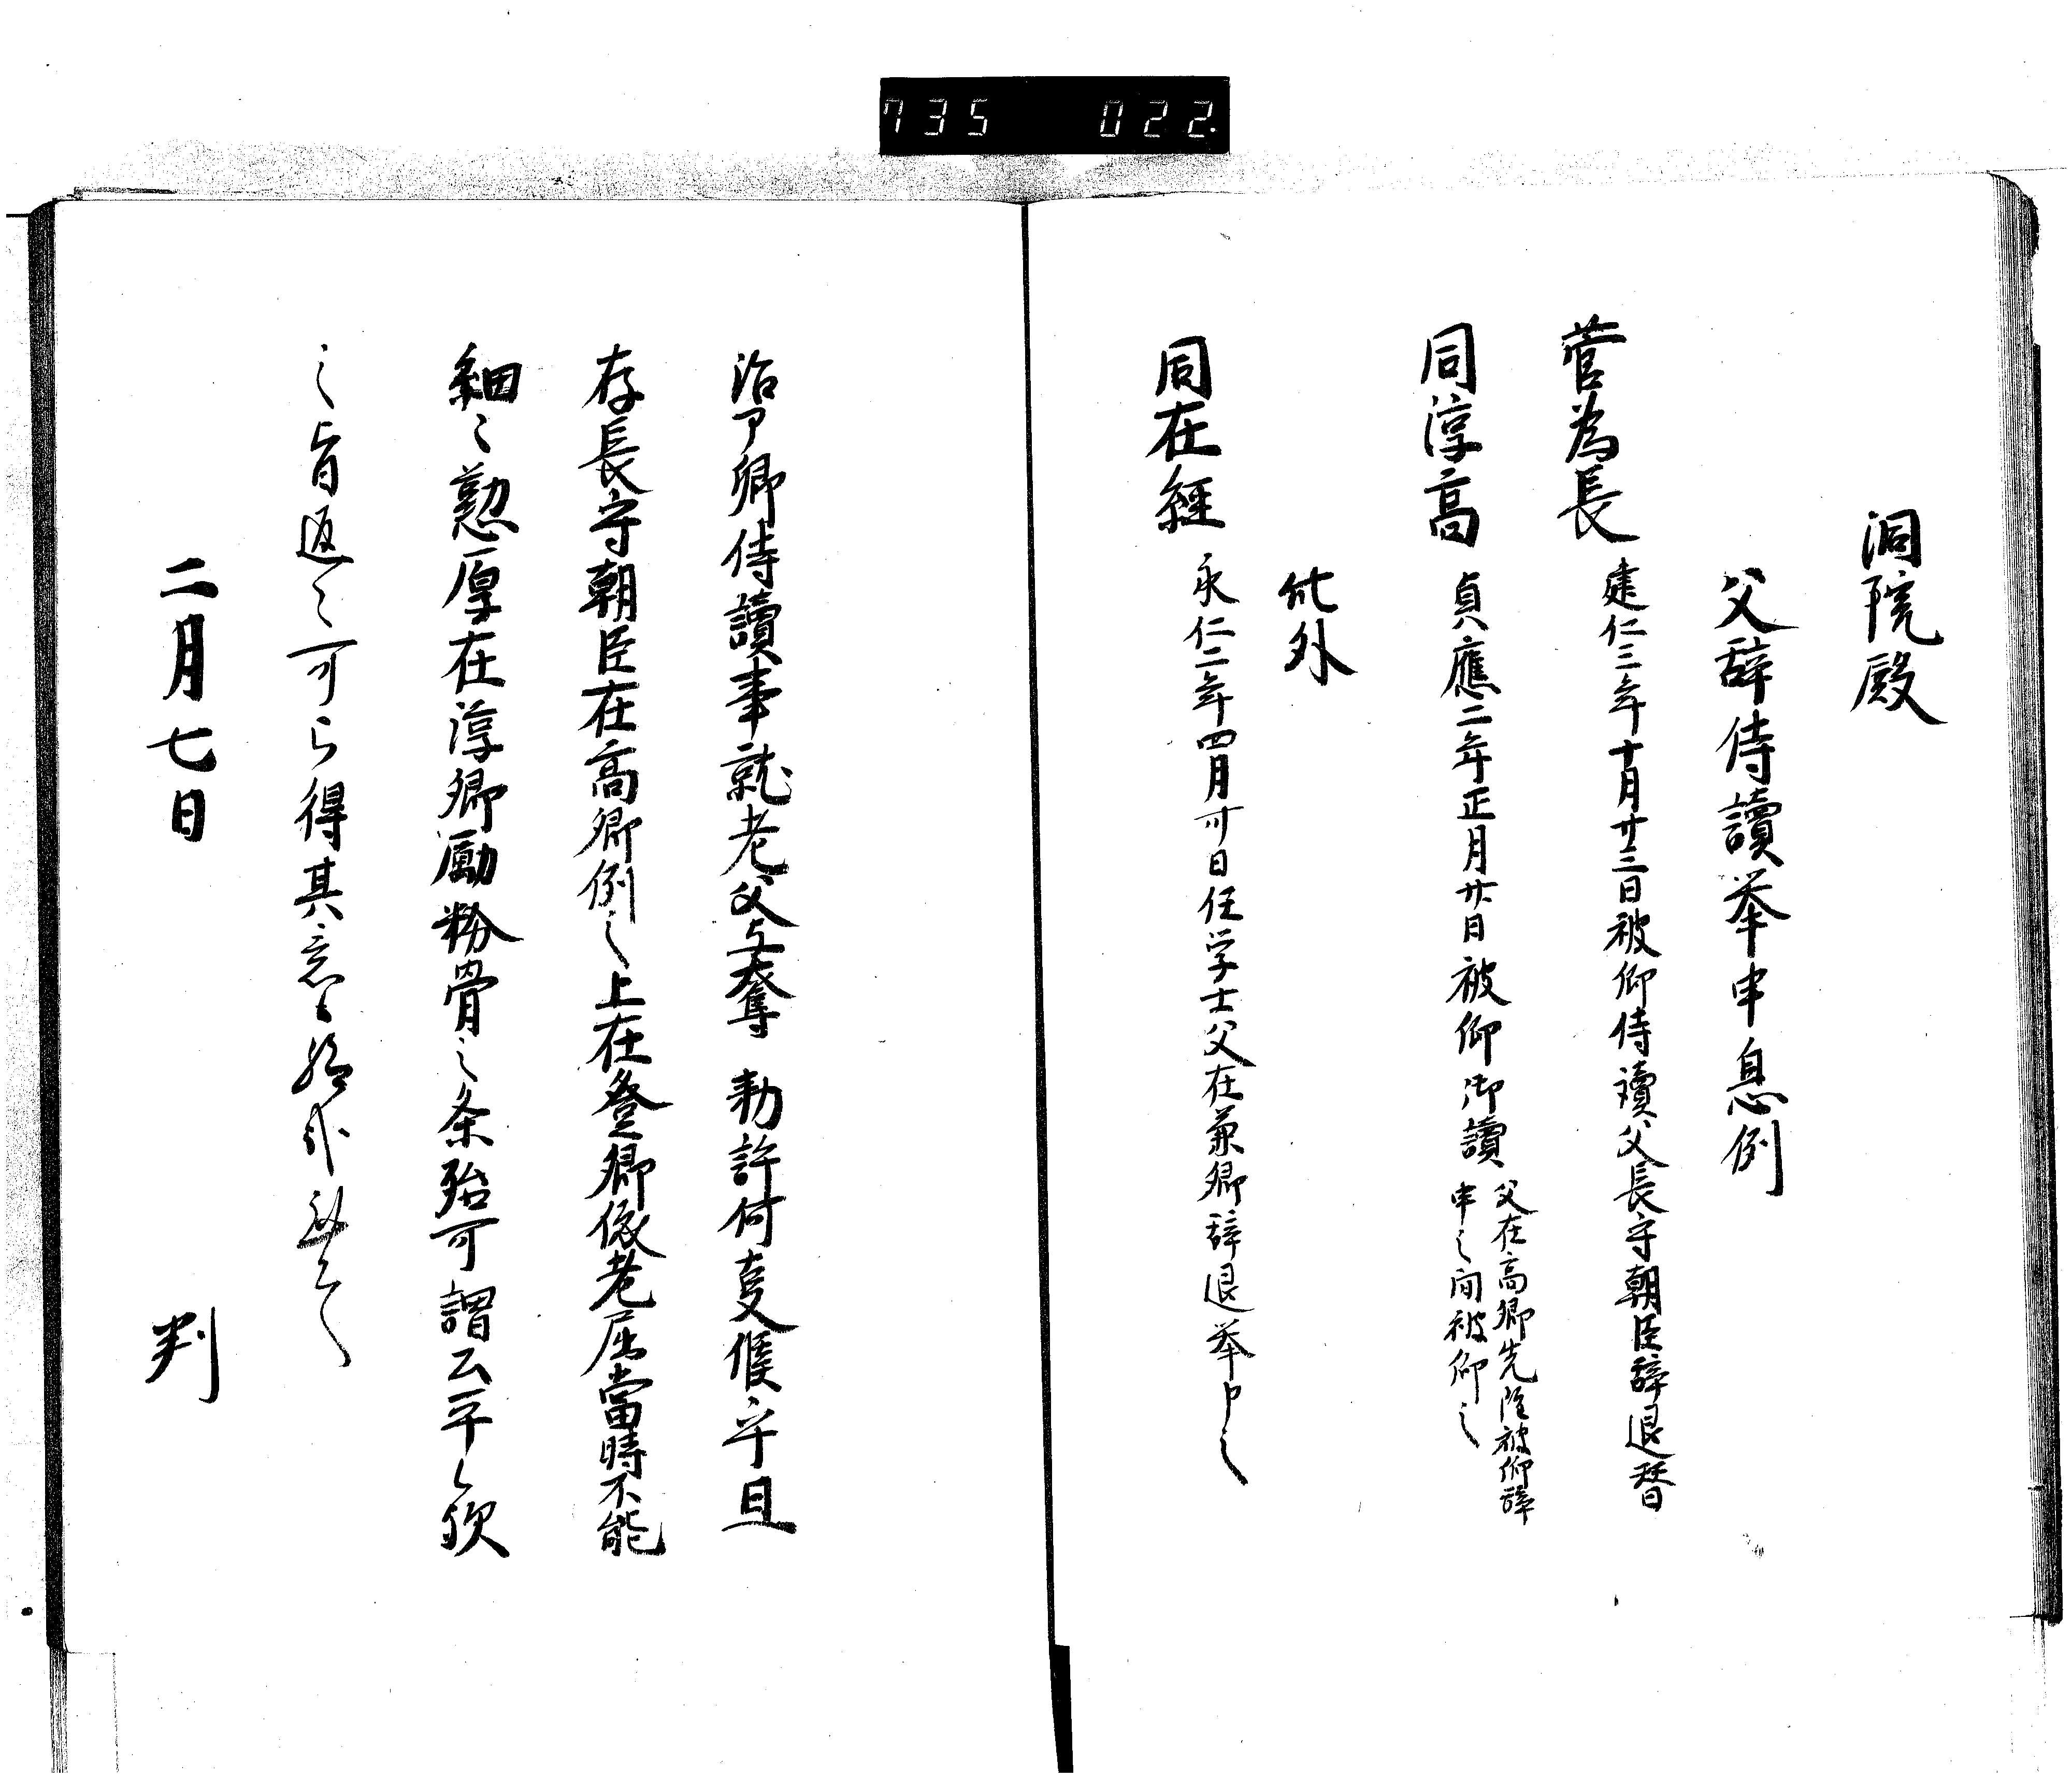 735 022.
洞院殿
父辞侍讀挙申息例
菅為長 建仁三年十月廿三日被仰侍讀父長守朝臣辞退替
同淳高 貞應二年正月廿日被仰御讀 父在高卿先陰被仰辞
申之間被仰之
此外
同在經 永仁二年四月卅日任学士父在兼卿辞退挙申之
治部卿侍讀事就老父与奪 勅許何妻候乎且
存長守朝臣在高卿例之上在登卿依老屈當時不能
細々懃厚在淳卿励粉骨之条殆可謂公平歟
之旨返々可得其意給
二月七日 判